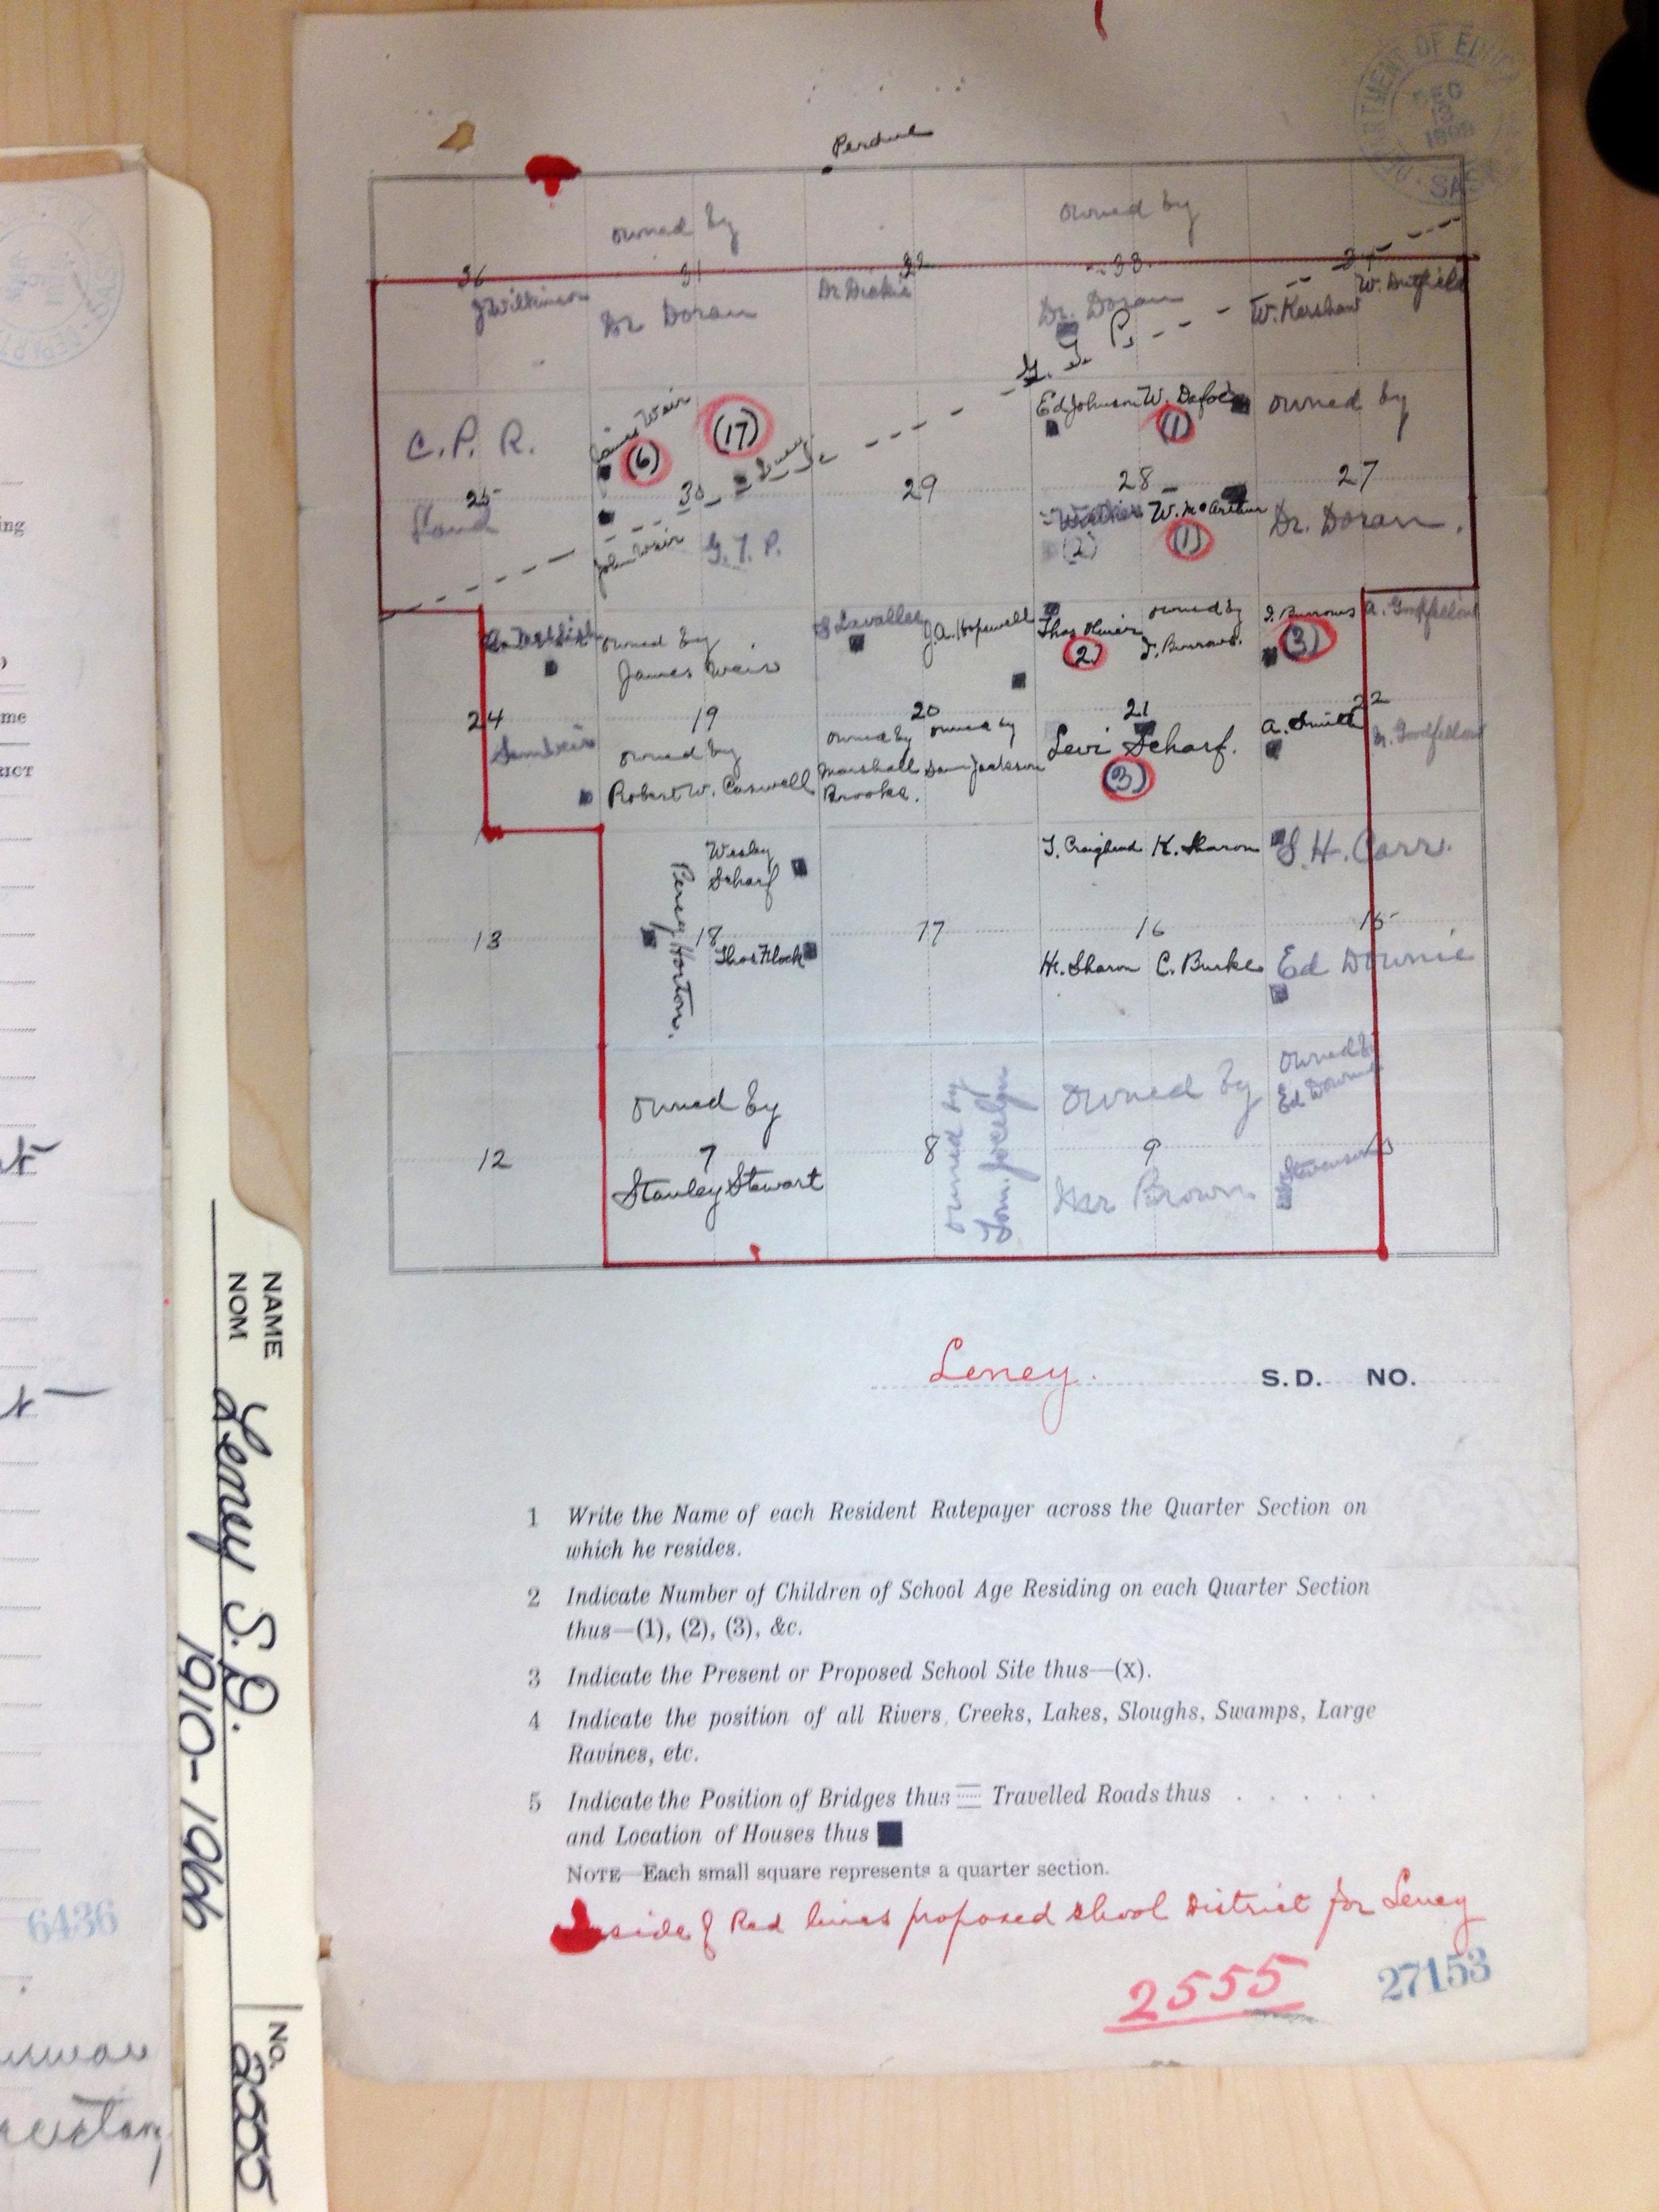 DEPARTMENT OF EDUCA
SASK
DEC
1909
Perdue
owned by
owned by
36
31
32
33
34
J Wilkinson
Dr Doran
Dr Doran
W. Kershaw
W. Dutfield
G. T. P.
C. P. R.
Land
25
James Weir
(6)
(17)
Leney
30
John Weir
G. T. P.
29
Ed Johnson
W. Dafoe
(1)
28
W. McArthur
(2)
(1)
owned by
27
Dr. Doran.
owned by
James Weir
S Lavallee
J.A. Hopewell
Thos
(2)
owned by
J. Burrows.
J. Burrows
(3)
A. Goodfellow
24
19
20
21
22
owned by
Robert W. Caswell
owned by
Marshall
Brooke.
owned by
Sam Jackson
Levi Scharf.
(3)
A. Smith
A. Goodfellow
Wesley
Scharf
Percy Horton.
T. Craighead
K. Sharon
S. H. Carr.
13
18
17
16
15
Thos Flock
H. Sharon
C. Burke
Ed Downie
owned by
Stanley Stewart
owned by
Tom. Jocelyn
owned by
Mr Brown
owned by
Ed Downie
Stevenson
12
7
8
9
Leney. S.D. NO.
1 Write the Name of each Resident Ratepayer across the Quarter Section on
which he resides.
2 Indicate Number of Children of School Age Residing on each Quarter Section
thus—(1), (2), (3), &c.
3 Indicate the Present or Proposed School Site thus—(x).
4 Indicate the position of all Rivers, Creeks, Lakes, Sloughs, Swamps, Large
Ravines, etc.
5 Indicate the Position of Bridges thus Travelled Roads thus . . . . .
and Location of Houses thus
NOTE—Each small square represents a quarter section.
Inside of Red lines proposed school District for Leney
2555
27153
NAME
NOM
Leney S.D.
1910-1966
NO.
2555
ing
me
RICT
6436